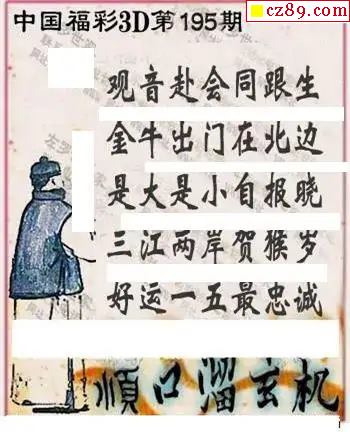 cz89.com
中国福彩3D第195期
观音赴会同跟生
金牛出门在北边
是大是小自报晓
三江两岸贺猴岁
好运一五最忠诚
順口溜玄机